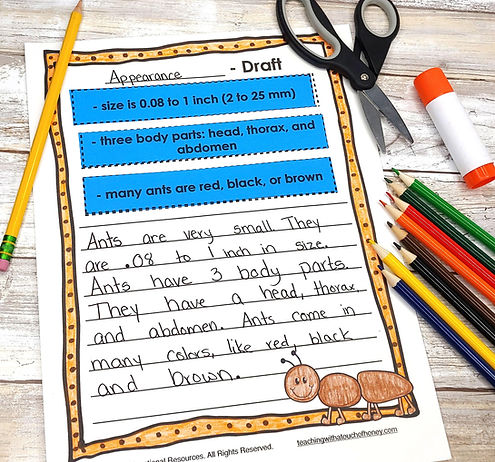 Appearance - Draft
- size is 0.08 to 1 inch (2 to 25 mm)
- three body parts: head, thorax, and
abdomen
- many ants are red, black, or brown
Ants are very small They
are .08 to 1 inch in size.
Ants have 3 body parts.
They have a head, thorax
and abdomen. Ants come in
many colors, like red, black
and brown.
Resources. All Rights Reserved.
teachingwithatouchofhoney.com